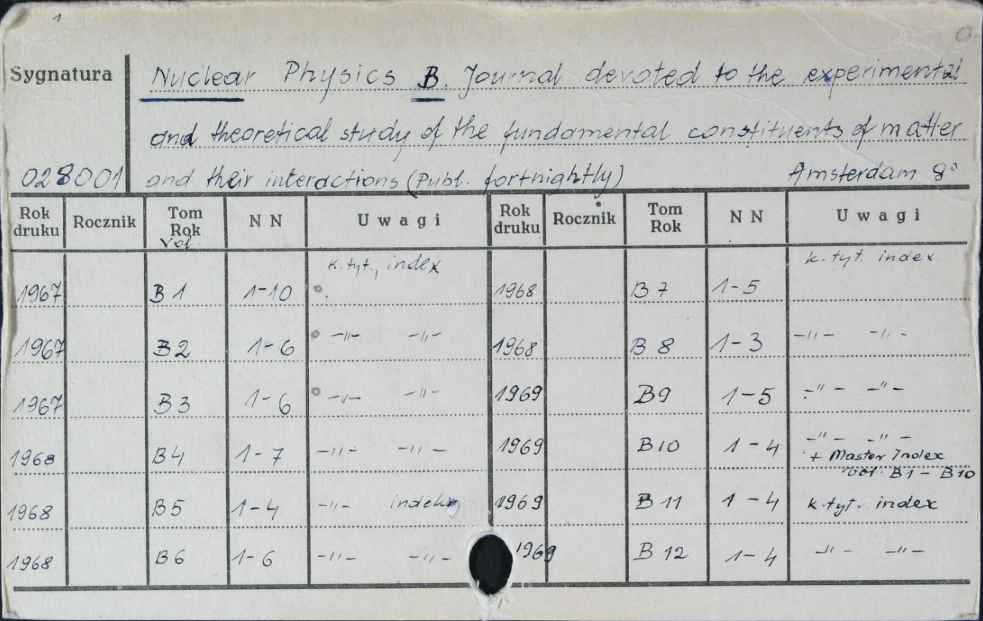 1
Sygnatura
Nuclear Physics B. Journal devoted to the experimental
and theoretical study of the fundamental constituents of matter
028001 and their interactions (Publ. fortnightly) Amsterdam 8°
Rok druku Rocznik Tom Rok Vol. NN Uwagi Rok druku Rocznik Tom Rok NN Uwagi
1967 B1 1-10 k. tyt., index 1968 B7 1-5 k. tyt. index
1967 B2 1-6 -"- -"- 1968 B8 1-3 -"- -"-
1967 B3 1-6 -"- -"- 1969 B9 1-5 -"- -"-
1968 B4 1-7 -"- -"- 1969 B10 1-4 -"- -"-
+ Master Index
vol B1 - B10
1968 B5 1-4 -"- indeks 1969 B11 1-4 k. tyt. index
1968 B6 1-6 -"- -"- 1969 B12 1-4 -"- -"-